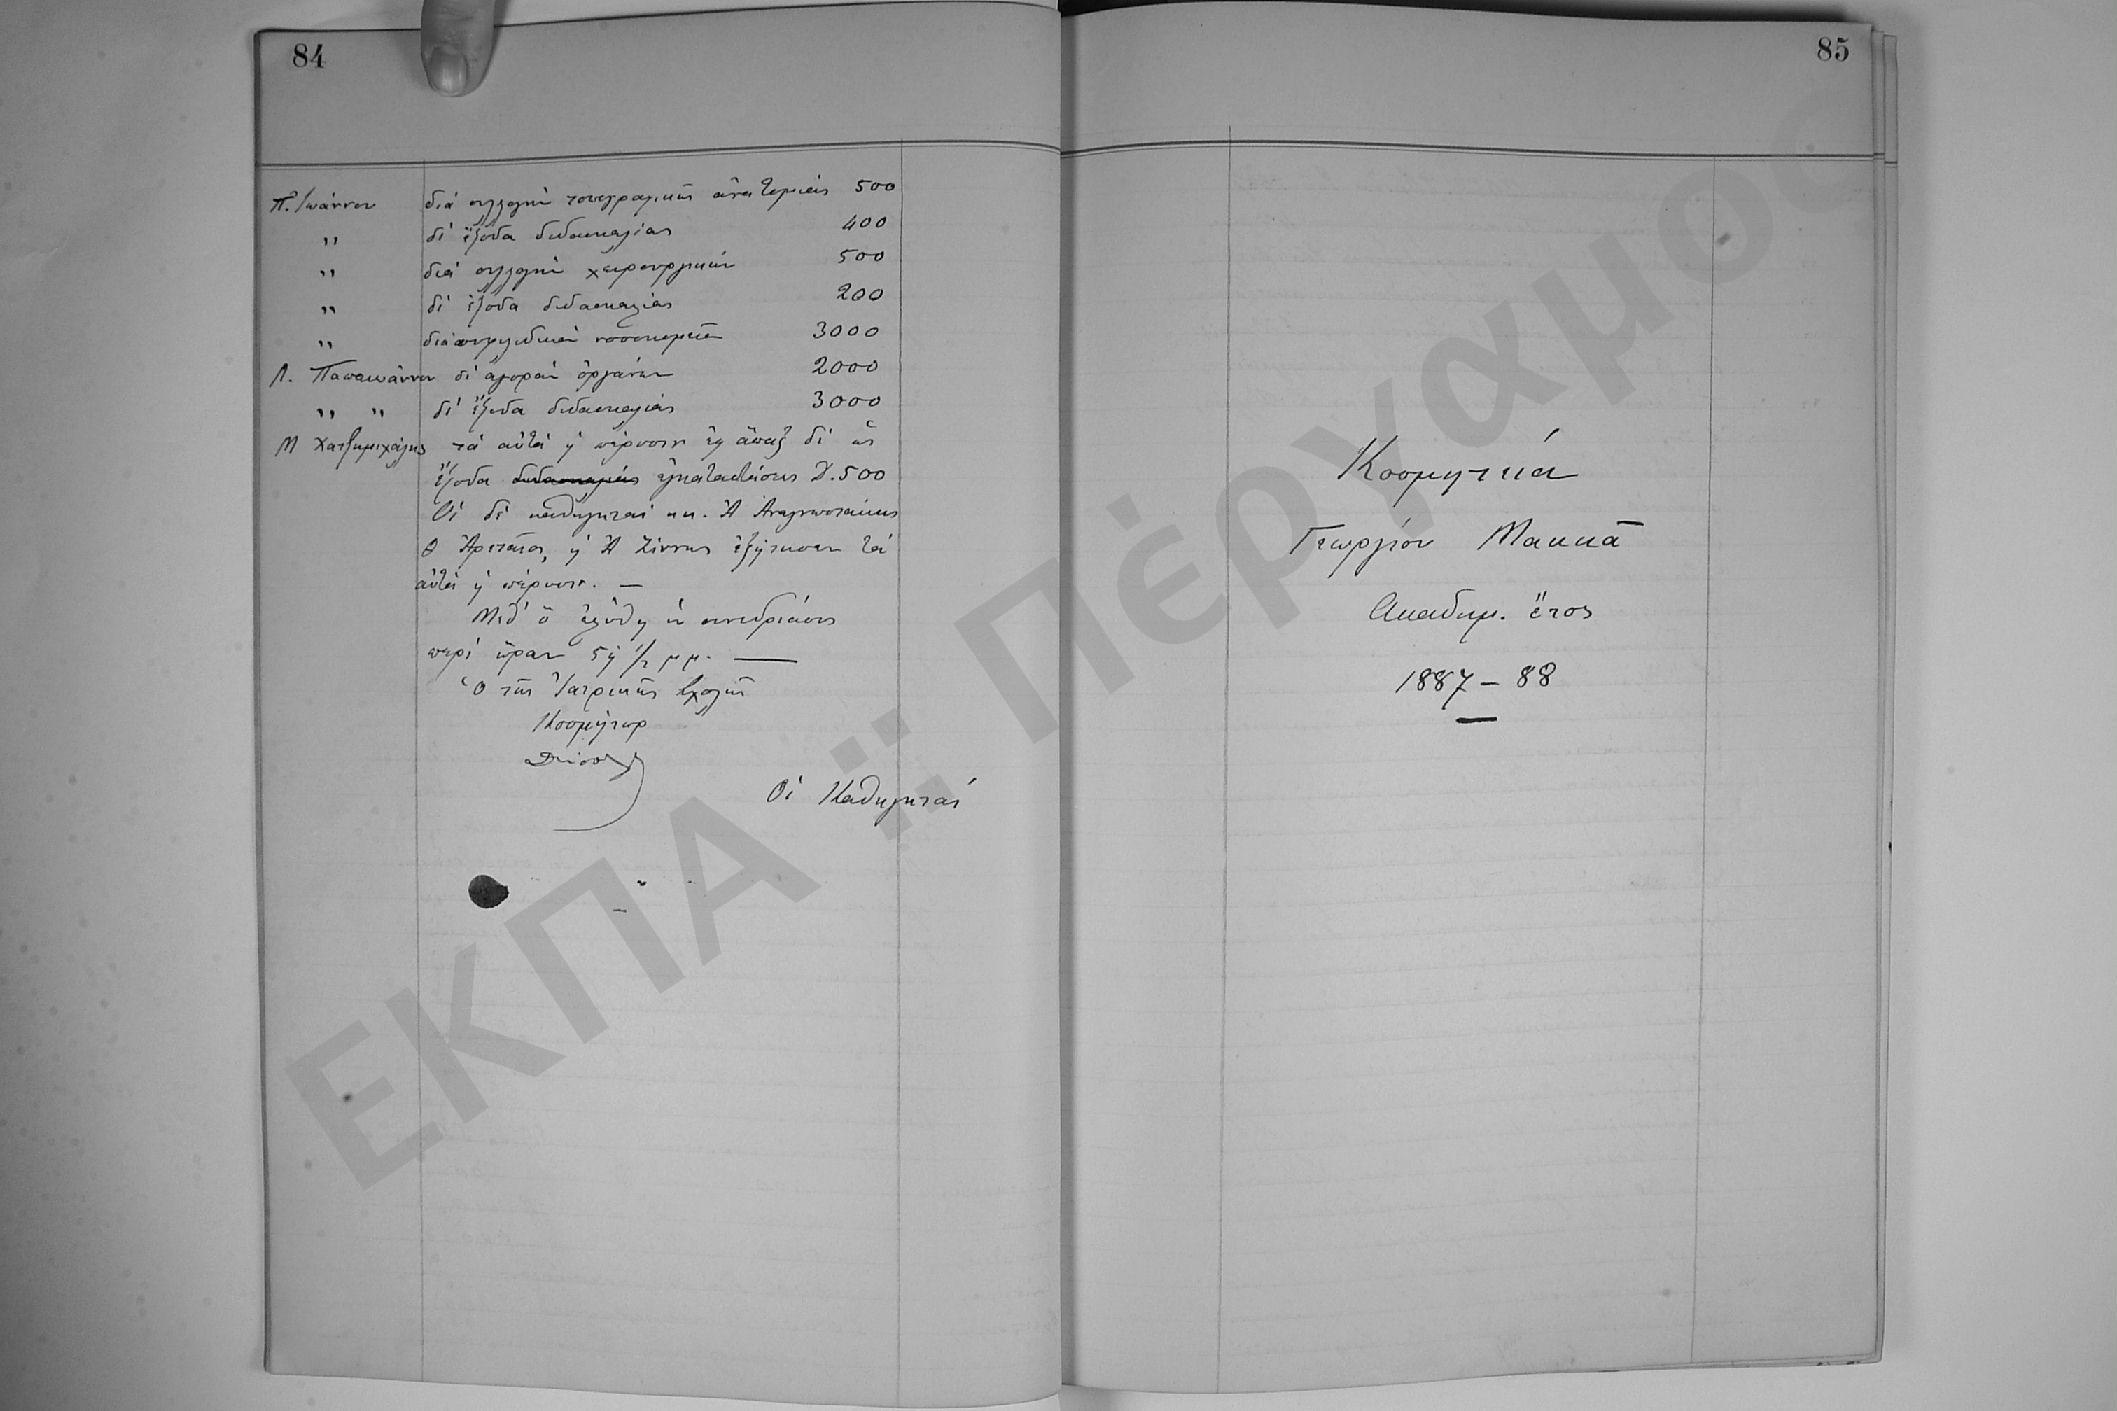 84
Π. Ἰωάννου διὰ συλλογὴν τοπογραφικῆς ἀνατομίας 500
„ δι' ἔξοδα διδασκαλίας 400
„ διὰ συλλογὴν χειρουργικὴν 500
„ δι' ἔξοδα διδασκαλίας 200
„ διὰ συφιλιδικὸν νοσοκομεῖον 3000
Λ. Παπαϊωάννου δι' ἀγορὰν ὀργάνων 2000
„ „ δι' ἔξοδα διδασκαλίας 3000
Μ Χατζημιχάλης τὰ αὐτὰ ἢ πέρυσιν ἐφ ἅπαξ δὲ ὡς
ἔξοδα διδασκαλίας ἐγκαταστάσεως Δ. 500
Οἱ δὲ καθηγηταὶ κκ. Ἀ Ἀναγνωστάκης
Θ Ἀρεταῖος, ἢ Ἀ Ζίννης ἐζήτησαν τὰ
αὐτὰ ἢ πέρυσιν. —
Μεθ' ὃ ἐλύθη ἡ συνεδρίασις
περὶ ὥραν 5ην 1/2 μμ. —
Ὁ τῆς Ἰατρικῆς Σχολῆς
Κοσμήτωρ
Οἱ Καθηγηταὶ
85
Κοσμητεία
Γεωργίου Μακκᾶ
Ακαδημ. ἔτος
1887 – 88
ΕΚΠΑ :: Πέργαμος